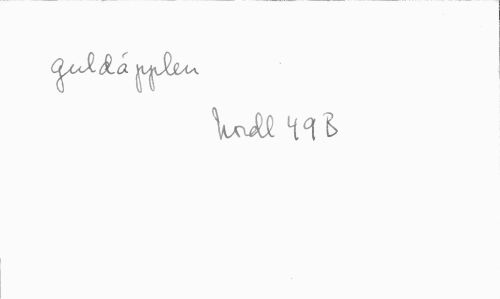 guldäpplen
Nordl 49 B